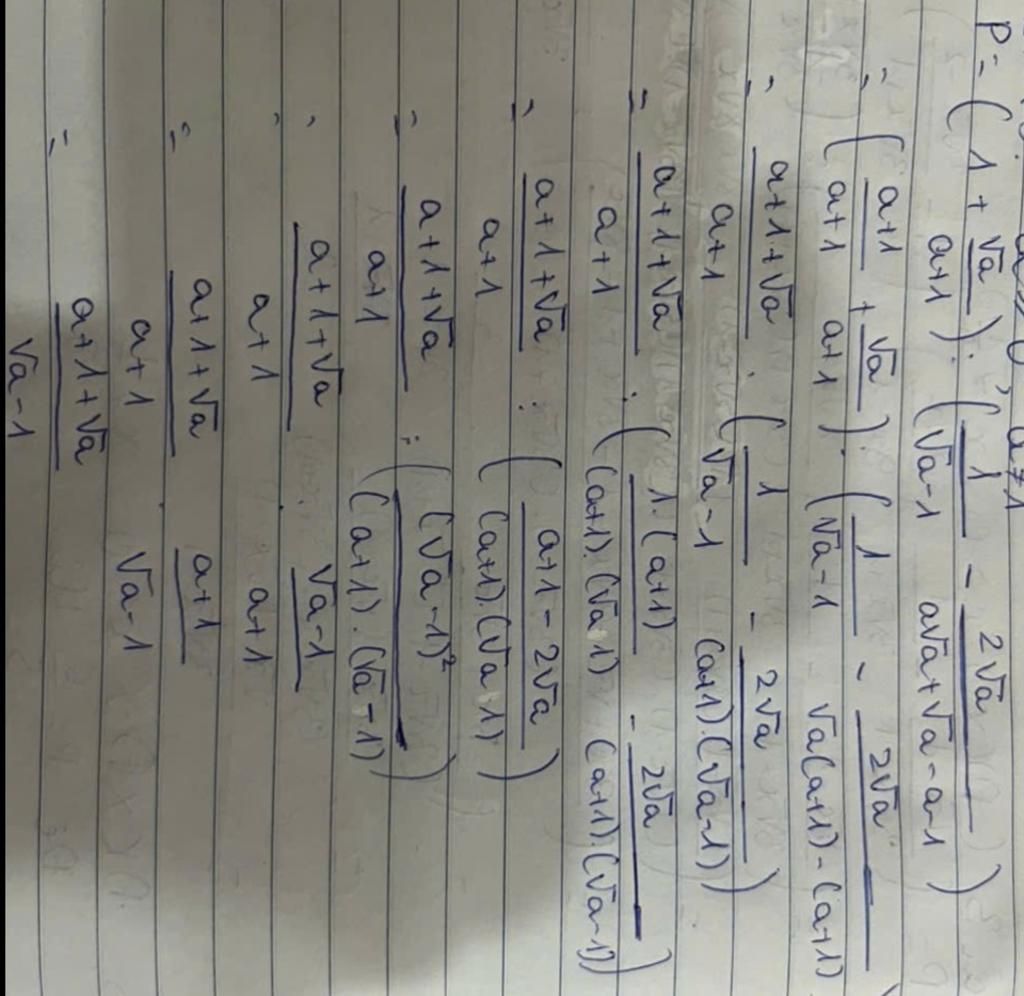 a > 0, a ≠ 1
P = (1 + √a/(a+1)) : (1/(√a-1) - 2√a/(a√a+√a-a-1))
= ((a+1)/(a+1) + √a/(a+1)) : (1/(√a-1) - 2√a/(√a(a+1)-(a+1)))
= (a+1+√a)/(a+1) : (1/(√a-1) - 2√a/((a+1).(√a-1)))
= (a+1+√a)/(a+1) : (1.(a+1)/((a+1).(√a-1)) - 2√a/((a+1).(√a-1)))
= (a+1+√a)/(a+1) : ((a+1-2√a)/((a+1).(√a-1)))
= (a+1+√a)/(a+1) : ((√a-1)²/((a+1).(√a-1)))
= (a+1+√a)/(a+1) : (√a-1)/(a+1)
= (a+1+√a)/(a+1) . (a+1)/(√a-1)
= (a+1+√a)/(√a-1)